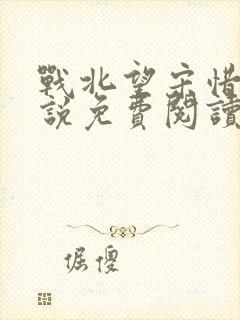 戰北望宋惜
說免費閱讀
倔傻